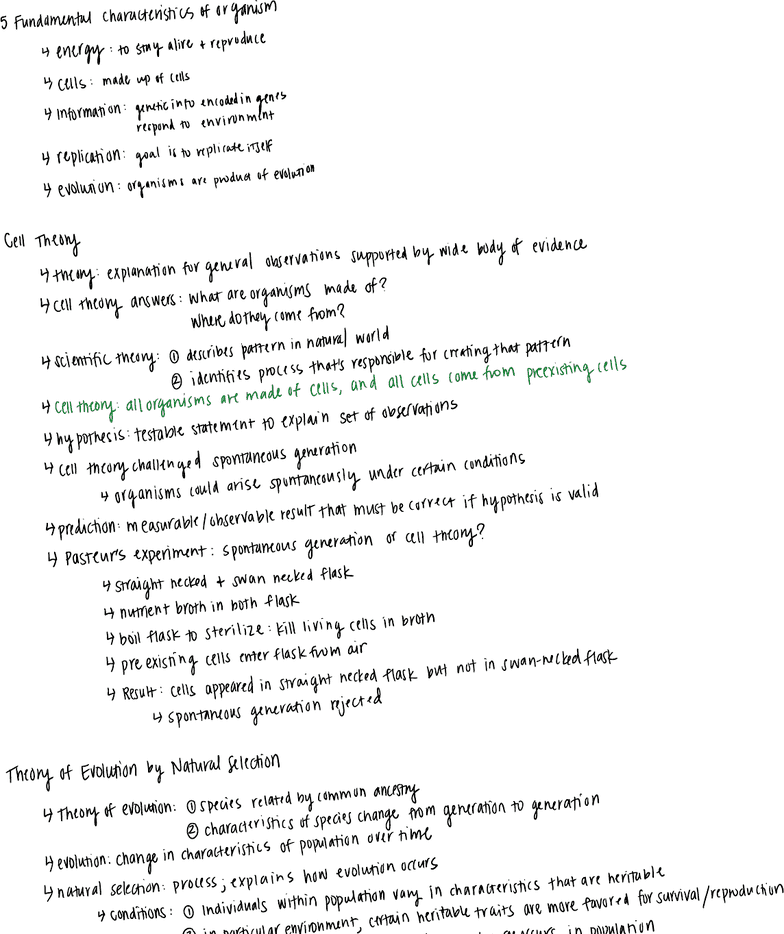 5 Fundamental characteristics of organism
↳ energy: to stay alive + reproduce
↳ cells: made up of cells
↳ information: genetic info encoded in genes
respond to environment
↳ replication: goal is to replicate itself
↳ evolution: organisms are product of evolution
Cell Theory
↳ theory: explanation for general observations supported by wide body of evidence
↳ cell theory answers: what are organisms made of?
where do they come from?
↳ scientific theory: ① describes pattern in natural world
② identifies process that's responsible for creating that pattern
↳ Cell theory: all organisms are made of cells, and all cells come from preexisting cells
↳ hypothesis: testable statement to explain set of observations
↳ cell theory challenged spontaneous generation
↳ organisms could arise spontaneously under certain conditions
↳ prediction: measurable/observable result that must be correct if hypothesis is valid
↳ Pasteur's experiment: spontaneous generation or cell theory?
↳ straight necked + swan necked flask
↳ nutrient broth in both flask
↳ boil flask to sterilize: kill living cells in broth
↳ pre existing cells enter flask from air
↳ Result: cells appeared in straight necked flask but not in swan-necked flask
↳ spontaneous generation rejected
Theory of Evolution by Natural Selection
↳ Theory of evolution: ① species related by common ancestry
② characteristics of species change from generation to generation
↳ evolution: change in characteristics of population over time
↳ natural selection: process; explains how evolution occurs
↳ conditions: ① Individuals within population vary in characteristics that are heritable
② in particular environment, certain heritable traits are more favored for survival/reproduction
occurs in population